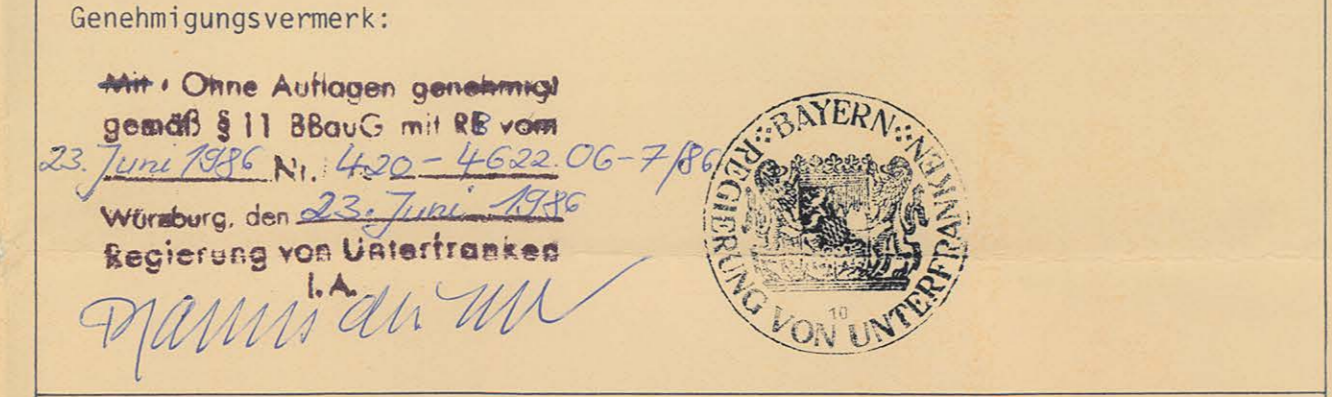 Genehmigungsvermerk:
Mit / Ohne Auflagen genehmigt
gemäß § 11 BBauG mit RE vom
23. Juni 1986 Nr. 420-4622.06-7/86
Würzburg, den 23. Juni 1986
Regierung von Unterfranken
I.A.
BAYERN
REGIERUNG VON UNTERFRANKEN
10